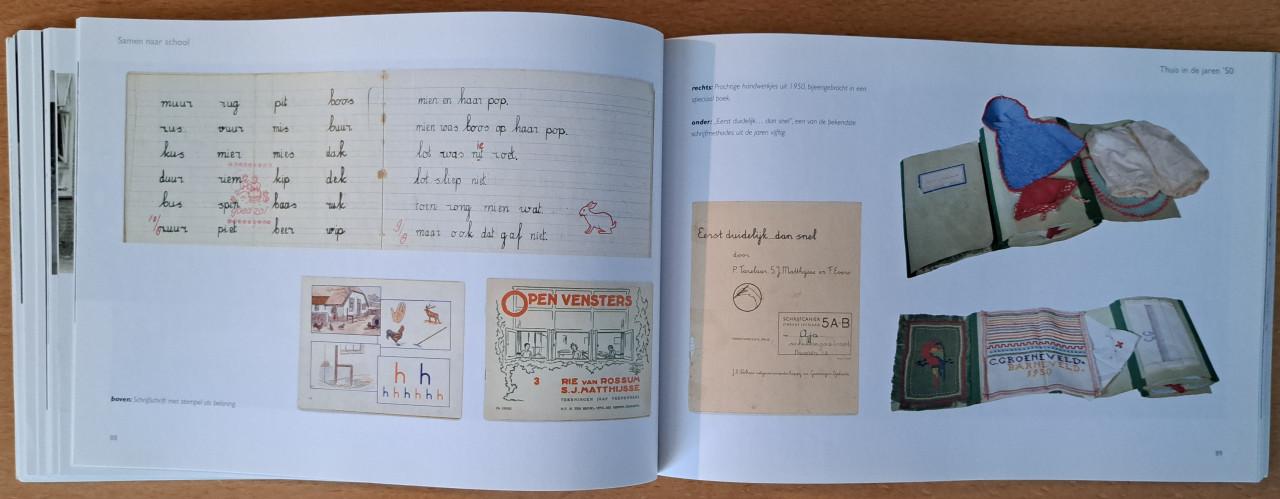 Samen naar school
muur rug pit boos
rus vuur mis buur
kus mier mies dak
duur riem kip dek
bus spin baas ruk
ruur piet beer wip
mien en haar pop.
mien was boos op haar pop.
ie
lot was nit root.
lot sliep niet
toen zong mien wat.
maar ook dat gaf niet.
goed zo!
h h
h h h h h h
OPEN VENSTERS
3 RIE VAN ROSSUM
S.J. MATTHIJSE
TEKENINGEN JAAP VEENENDAAL
boven: Schrijfschrift met stempel als beloning.
88
Thuis in de jaren '50
rechts: Prachtige handwerkjes uit 1950, bijeengebracht in een
speciaal boek.
onder: „Eerst duidelijk... dan snel", een van de bekendste
schrijfmethodes uit de jaren vijftig.
Eerst duidelijk.. dan snel
door
S.J. Matthijsse en F. Evers
SCHRIJFCAHIER 5A-B
C.GROENEVELD.
BARNEVELD.
1950
89